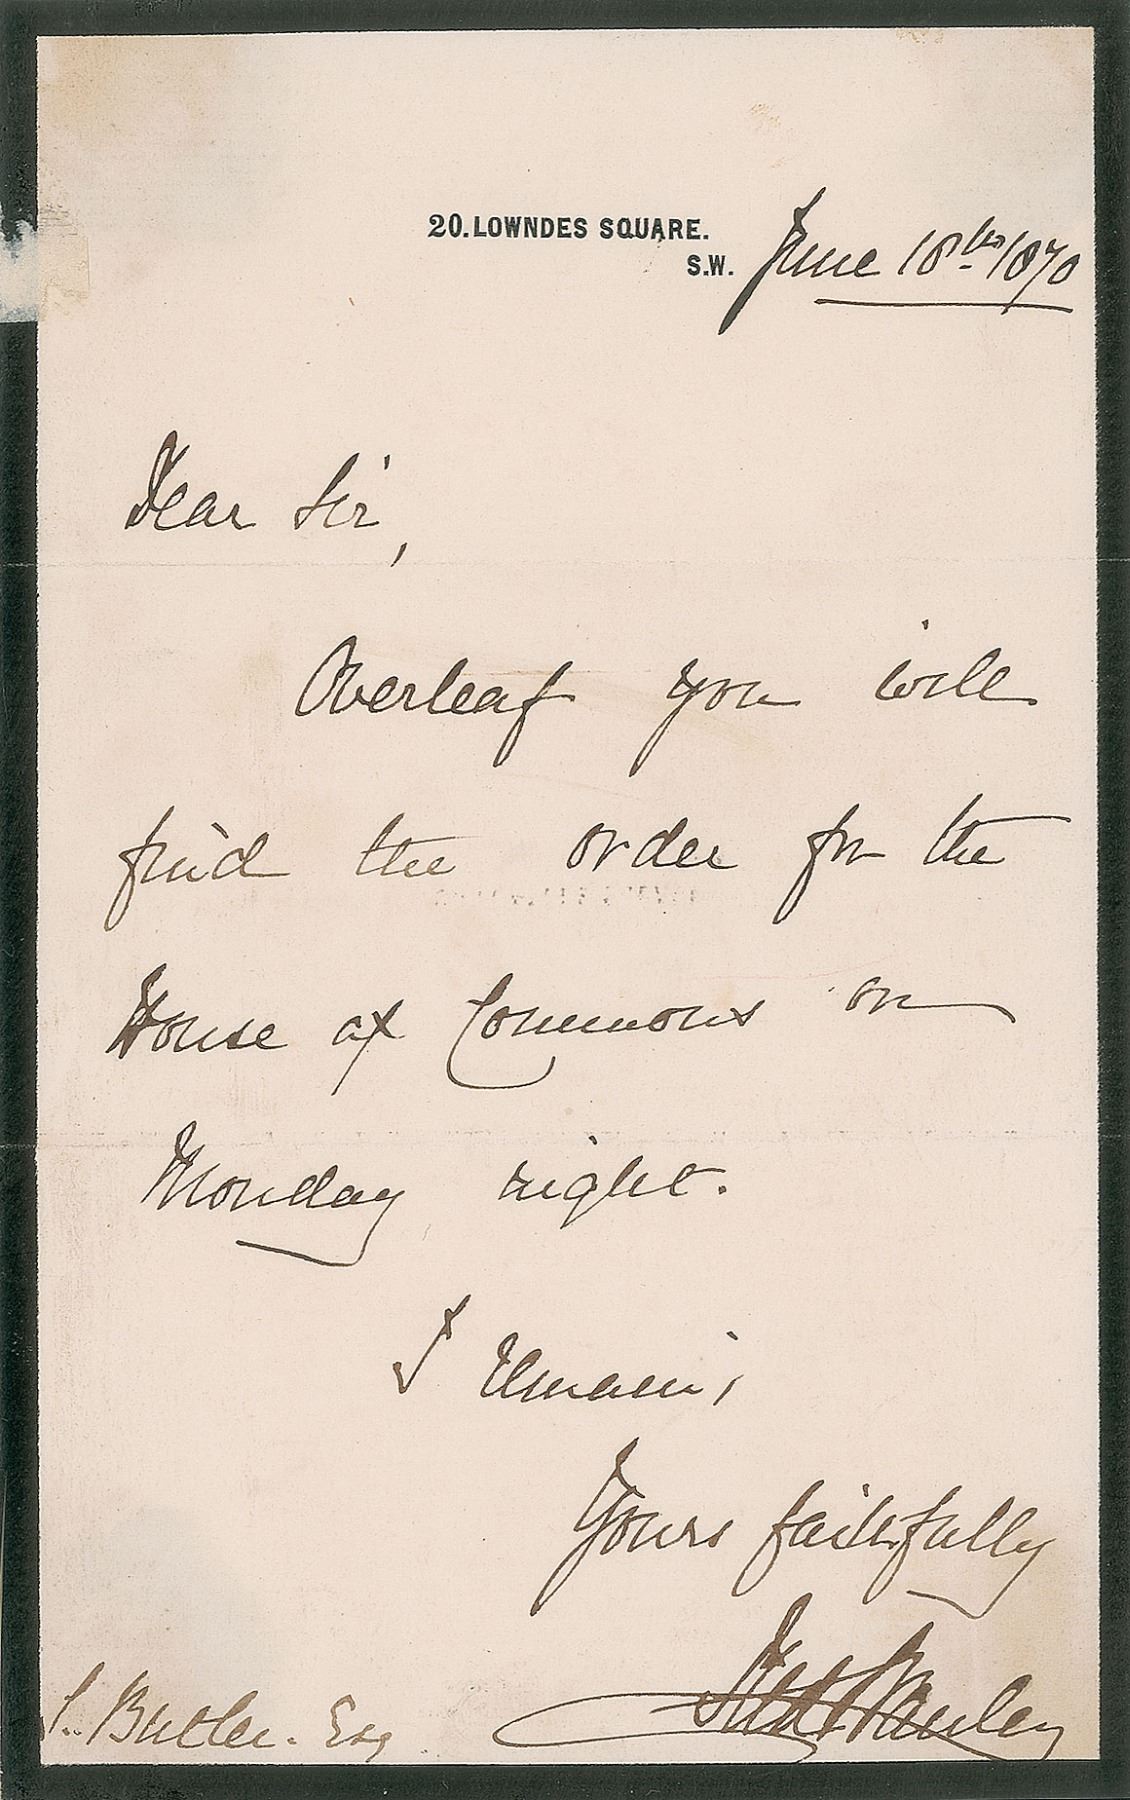 20. LOWNDES SQUARE.
S.W. June 18th 1870
Dear Sir,
Overleaf you will
find the order for the
House of Commons on
Monday night.
I remain,
Yours faithfully
S. Butler. Esq